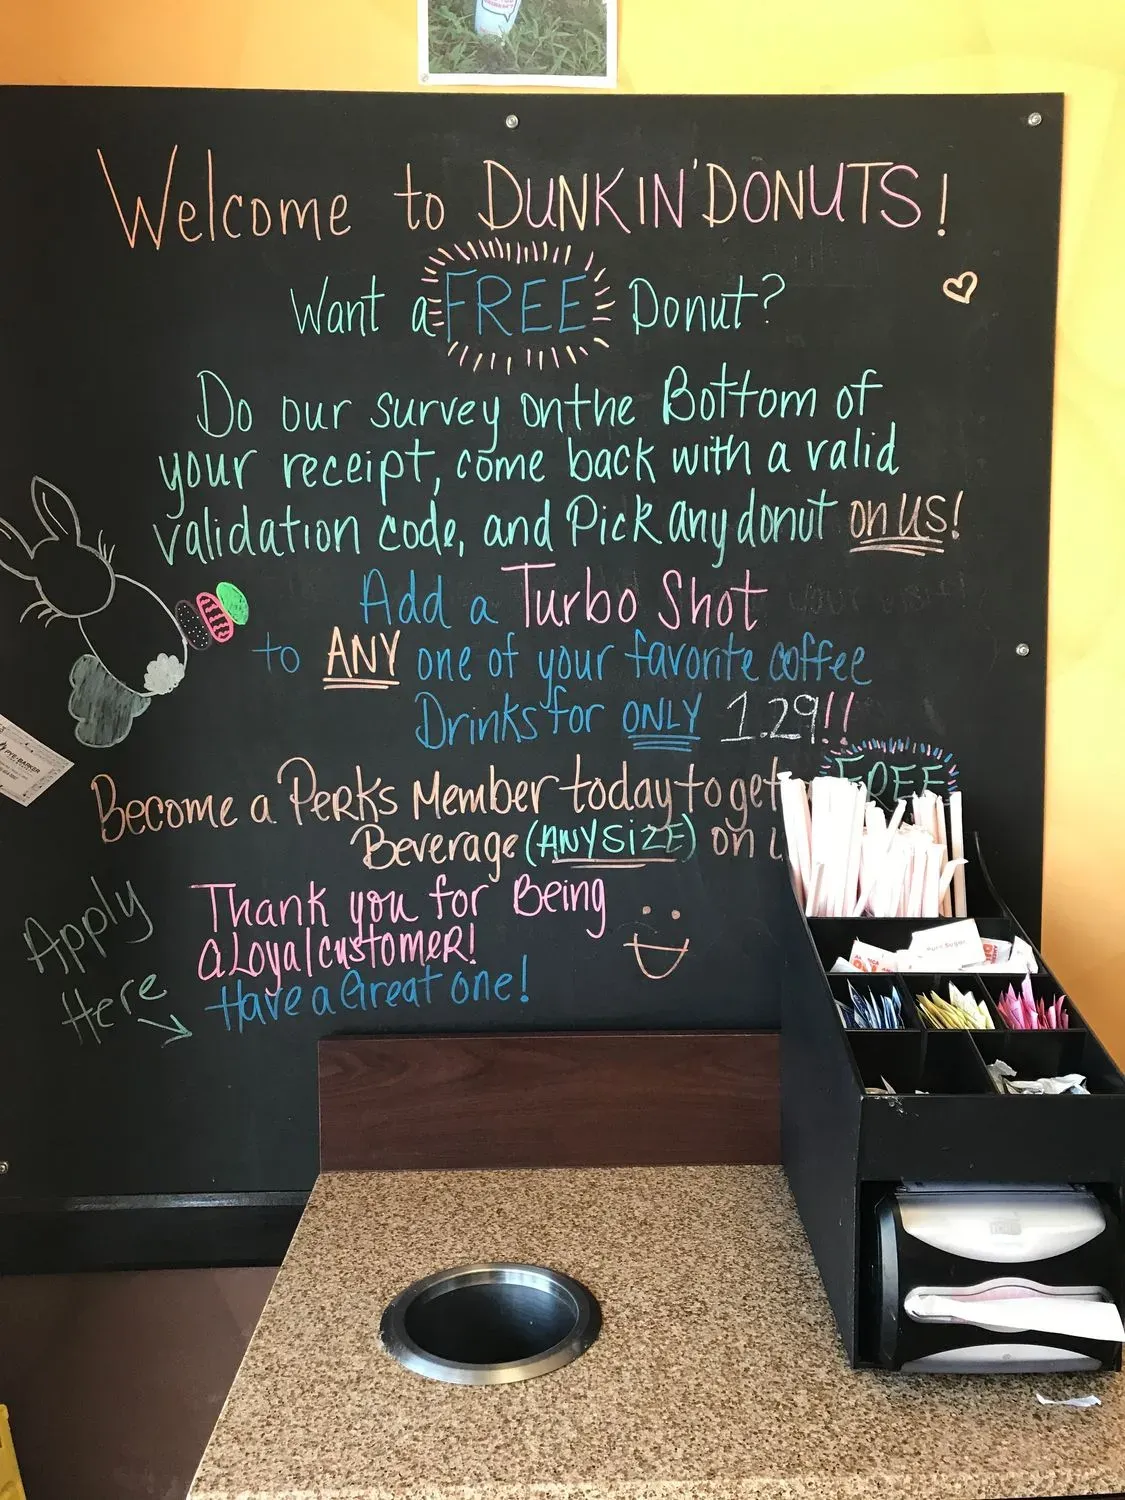 Welcome to DUNKIN' DONUTS!
Want a FREE Donut?
Do our survey on the Bottom of
your receipt, come back with a valid
validation code, and Pick any donut on us!
Add a Turbo Shot
to ANY one of your favorite coffee
Drinks for ONLY 1.29!!
Become a Perks Member today to get FREE
Beverage (ANY SIZE) on
Thank you for Being
a Loyal customer!
Have a Great one!
Apply
Here
Pure Sugar